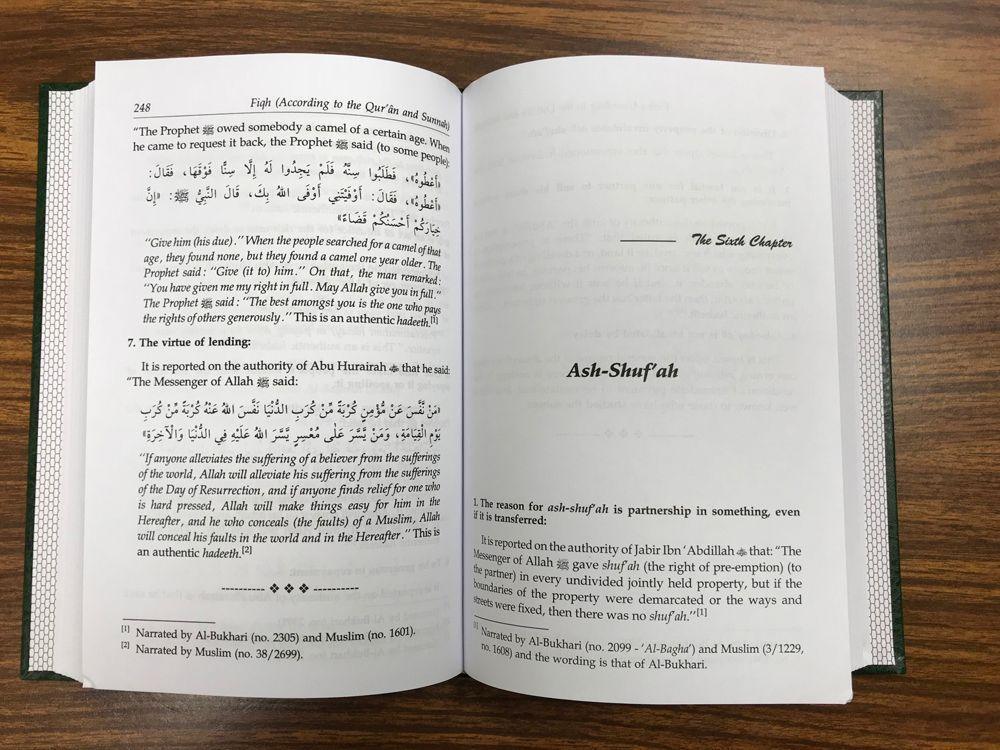 248 Fiqh (According to the Qur'ân and Sunnah)
"The Prophet ﷺ owed somebody a camel of a certain age. When
he came to request it back, the Prophet ﷺ said (to some people):
«أَعْطُوهُ»، فَطَلَبُوا سِنَّهُ فَلَمْ يَجِدُوا لَهُ إِلَّا سِنًّا فَوْقَهَا، فَقَالَ:
«أَعْطُوهُ»، فَقَالَ: أَوْفَيْتَنِي أَوْفَى اللهُ بِكَ، قَالَ النَّبِيُّ ﷺ: «إِنَّ
خِيَارَكُمْ أَحْسَنُكُمْ قَضَاءً»
"Give him (his due)." When the people searched for a camel of that
age, they found none, but they found a camel one year older. The
Prophet said: "Give (it to) him." On that, the man remarked:
"You have given me my right in full. May Allah give you in full."
The Prophet ﷺ said: "The best amongst you is the one who pays
the rights of others generously." This is an authentic hadeeth.[1]
7. The virtue of lending:
It is reported on the authority of Abu Hurairah that he said:
"The Messenger of Allah ﷺ said:
«مَنْ نَفَّسَ عَنْ مُؤْمِنٍ كُرْبَةً مِّنْ كُرَبِ الدُّنْيَا نَفَّسَ اللهُ عَنْهُ كُرْبَةً مِّنْ كُرَبِ
يَوْمِ الْقِيَامَةِ، وَمَنْ يَسَّرَ عَلَى مُعْسِرٍ يَسَّرَ اللهُ عَلَيْهِ فِي الدُّنْيَا وَالْآخِرَةِ»
"If anyone alleviates the suffering of a believer from the sufferings
of the world, Allah will alleviate his suffering from the sufferings
of the Day of Resurrection, and if anyone finds relief for one who
is hard pressed, Allah will make things easy for him in the
Hereafter, and he who conceals (the faults) of a Muslim, Allah
will conceal his faults in the world and in the Hereafter." This is
an authentic hadeeth.[2]
[1] Narrated by Al-Bukhari (no. 2305) and Muslim (no. 1601).
[2] Narrated by Muslim (no. 38/2699).
The Sixth Chapter
Ash-Shuf'ah
1. The reason for ash-shuf'ah is partnership in something, even
if it is transferred:
It is reported on the authority of Jabir Ibn 'Abdillah that: "The
Messenger of Allah ﷺ gave shuf'ah (the right of pre-emption) (to
the partner) in every undivided jointly held property, but if the
boundaries of the property were demarcated or the ways and
streets were fixed, then there was no shuf'ah."[1]
[1] Narrated by Al-Bukhari (no. 2099 - 'Al-Bagha') and Muslim (3/1229,
no. 1608) and the wording is that of Al-Bukhari.